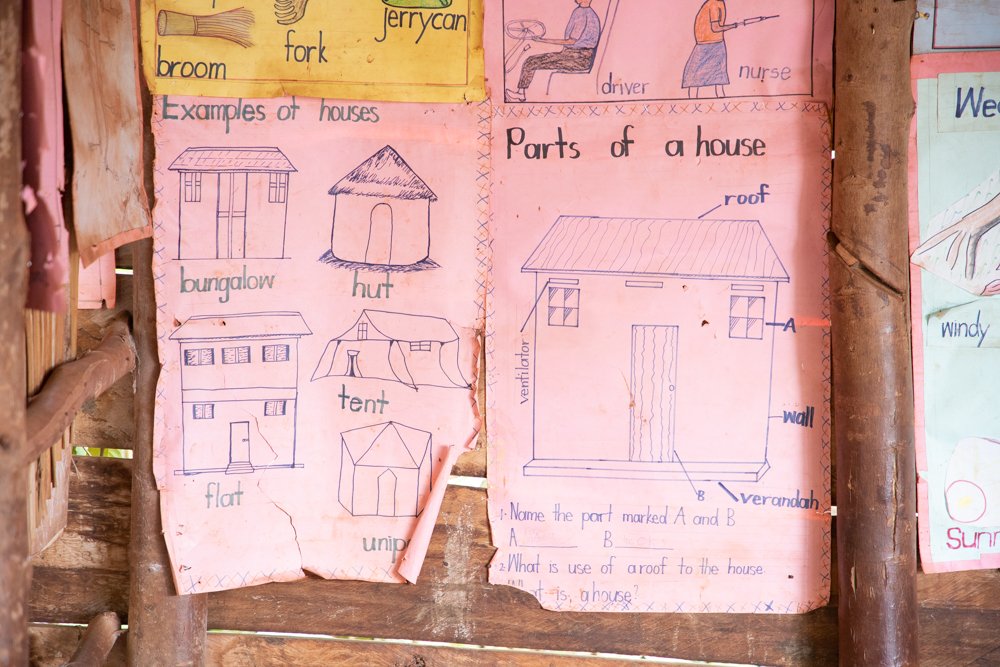 jerrycan
fork
broom
driver
nurse
Examples of houses
bungalow
hut
tent
flat
Parts of a house
roof
ventilator
A
wall
B
verandah
1. Name the part marked A and B
A B
2. What is use of a roof to the house
is a house?
windy